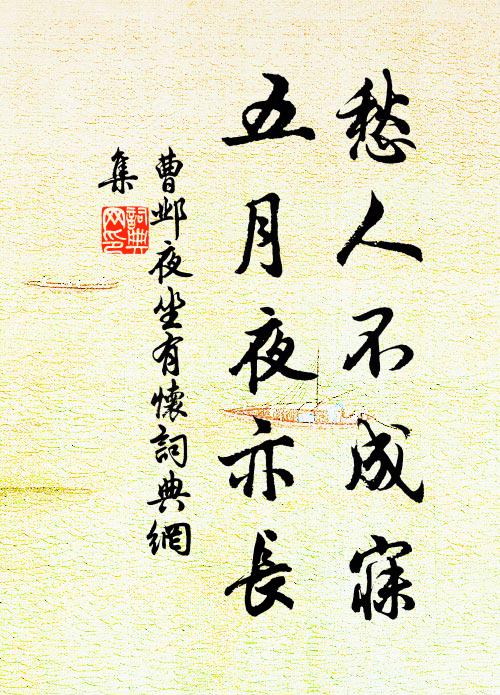 愁人不成寐
五月夜亦長
曹邺夜坐有懷詞典網
集
詞典
网印